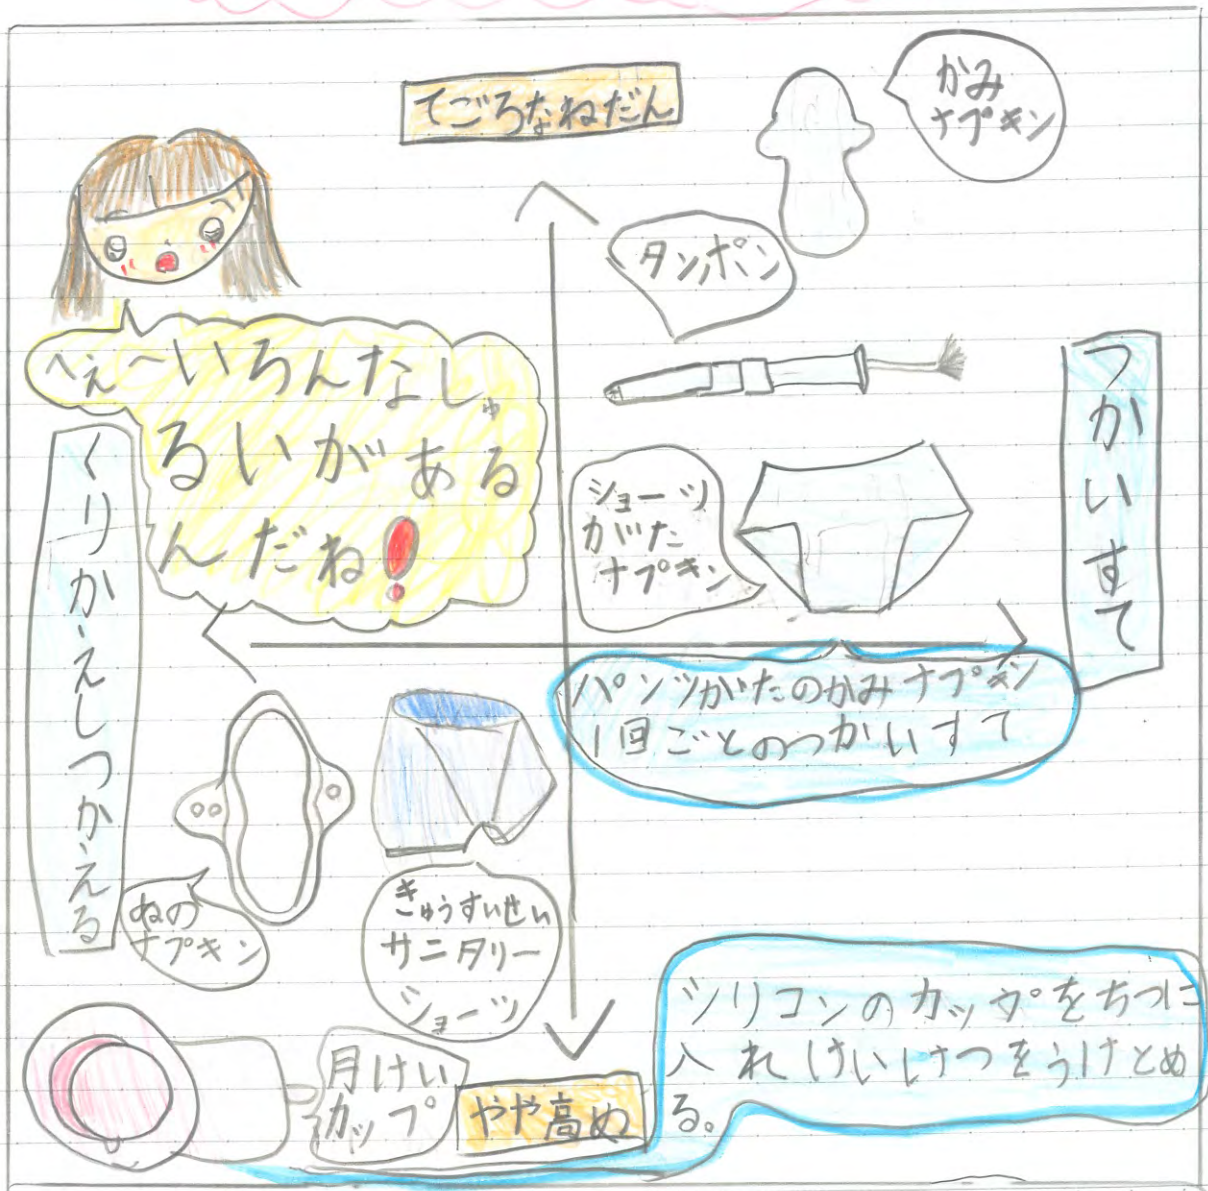 てごろなねだん
かみ
ナプキン
タンポン
へぇ～いろんなしゅ
るいがある
んだね!
つかいすて
くりかえしつかえる
ショーツ
がた
ナプキン
パンツがたのかみナプキン
1回ごとのつかいすて
ぬの
ナプキン
きゅうすいせい
サニタリー
ショーツ
月けい
カップ
やや高め
シリコンのカップをちつに
入れけいけつをうけとめ
る。